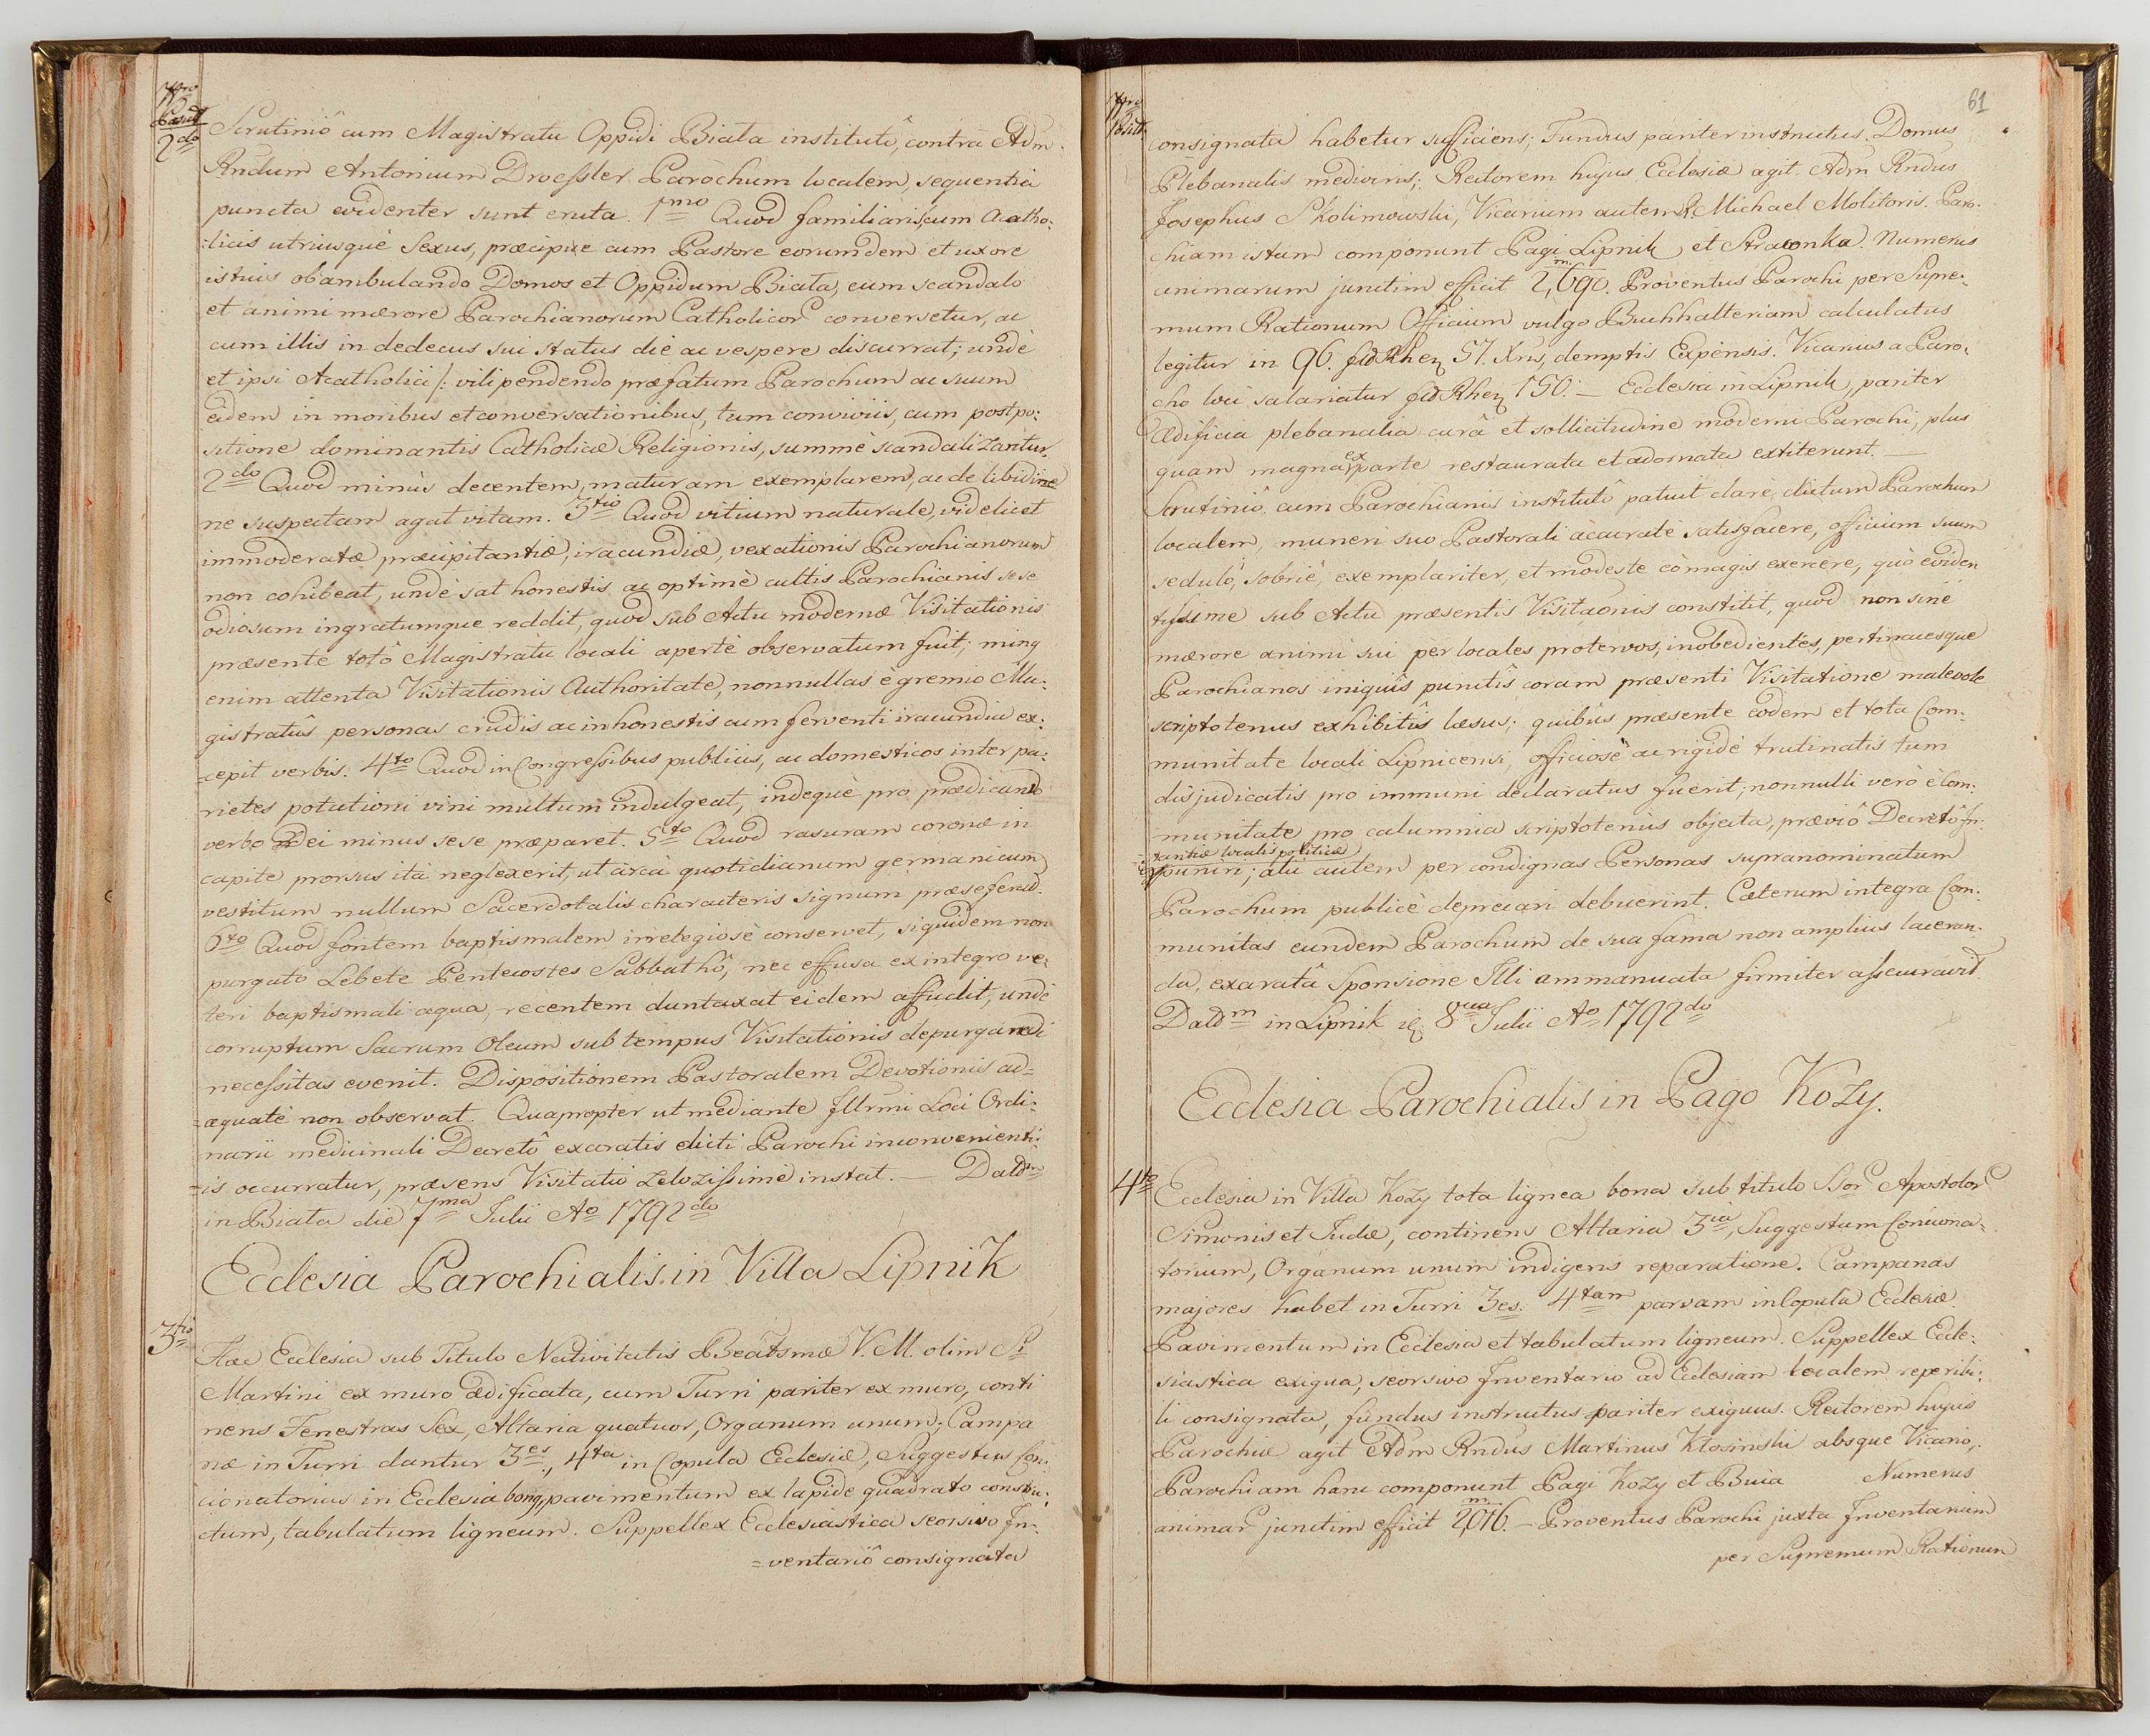 2do
Scrutiniô cum Magistratu Oppidi Biała institutô, contra Adm.
Rndum Antonium Droessler Parochum localem, sequentia
puncta evidenter sunt eruta. 1mo Quod familiaris, cum Acatho:
:licis utriusquè Sexus, præcipue cum Pastore eorumdem et uxore
istius obambulando Domos et Oppidum Biała, cum scandalo
et animi mærore Parochianorum Catholicor conversetur, ac
cum illis in dedecus sui status die ac vespere discurrat; undè
et ipsi Acatholici /: vilipendendo præfatum Parochum ac suum
eidem in moribus et conversationibus, tum conviviis, cum postpo:
sitione dominantis Catholicæ Religionis, summè scandalizantur.
2do Quod minùs decentem, maturam exemplarem, ac de libidine
ne suspectam agat vitam. 3tio Quod vitium naturale, videlicet
immoderatæ præcipitantiæ, iracundiæ, vexationis Parochianorum
non cohibeat, undè sat honestis ac optimè cultis Parochianis sese
odiosum ingratumque reddit, quod sub Actu modernæ Visitationis
præsente totô Magistratu locali apertè observatum fuit; minq
enim attenta Visitationis Authoritate, nonnullas è gremio Ma:
gistratûs personas crudis ac inhonestis cum ferventi iracundia ex:
=cepit verbis. 4to Quod in Congressibus publicis, ac domesticos inter pa:
rietes potationi vini multum indulgeat, indequè pro prædicando
verbo Dei minus sese præparet. 5to Quod rasuram coronæ in
capite prorsus ità neglexerit, ut circà quotidianum germanicum
vestitum nullum Sacerdotalis characteris signum præseferat.
6to Quod fontem baptismalem irrelegiosè conservet, siquidem non
purgato Lebete Pentecostes Sabbathô, nec effusa ex integro ve:
teri baptismali aqua, recentem duntaxat eidem affudit, undè
corruptum Sacrum Oleum sub tempus Visitationis depurgandi
necessitas evenit. Dispositionem Pastoralem Devotionis ad=
=æquatè non observat. Quapropter ut mediante Illrmi Loci Ordi=
narii medicinali Decretô exaratis dicti Parochi inconvenienti:
=is occurratur, præsens Visitatio zelozissimè instat. — Datdm
in Biała die 7ma Julii Ao 1792do
Ecclesia Parochialis in Villa Lipnik
3tio
Hæc Ecclesia sub Titulo Nativitatis Beatsmæ V. M. olim Si
Martini ex muro ædificata, cum Turri pariter ex muro, conti
nens Fenestras Sex, Altaria quatuor, Organum unum; Campa
næ in Turri dantur 3es, 4ta in Copula Ecclesiæ, Suggestus Con:
cionatorius in Ecclesia bonq, pavimentum ex lapide quadrato constru:
ctum, tabulatum ligneum. Suppellex Ecclesiastica seorsivo In=
=ventariô consignata
61
consignata habetur sufficiens; Fundus pariter instructus. Domus
Plebanalis mediocris; Rectorem hujus Ecclesiæ agit Adm Rndus
Josephus Skolimowski, Vicarium autem R. Michael Molitoris. Paro:
chiam istam componunt Pagi Lipnik et Straconka. Numerus
animarum junctim efficit 2,690. Proventus Parochi per Supre:
mum Rationum Officium vulgo Buchhalteriam calculatus
legitur in 96. fl Rhen 51. Xris, demptis Expensis. Vicarius a Paro:
cho loci salariatur fl Rhen 150. — Ecclesia in Lipnik, pariter
Ædificia plebanalia curâ et sollicitudine moderni Parochi, plus
quam magna ex parte restaurata et adornata extiterunt. —
Scrutiniô cum Parochianis institutô patuit clarè, dictum Parochum
localem, muneri suo Pastorali accuratè satisfacere, officium suum
sedulò, sobriè, exemplariter, et modeste eò magis exercere, quò eviden
tissime sub Actu præsentis Visitaonis constitit, quod non sine
mærore animi sui pèr locales protervos, inobedientes, pertinacesque
Parochianos iniquîs punctîs coram præsenti Visitatione malevole
scriptotenus exhibitîs læsus; quibûs præsente eodem et tota Com:
munitate locali Lipnicensi, officiosè ac rigidè trutinatis tum
disjudicatis pro immuni declaratus fuerit, nonnulli verò è Com:
munitate pro calumnia scriptotenùs objecta, præviô Decretô In:
stantiæ localis politicæ
puniri; alii autem per condignas Personas supranominatum
Parochum publicè deprecari debuerint. Cæterum integra Com:
munitas eundem Parochum de sua fama non amplius laceran:
da, exaratâ Sponsione Illi ammanuata firmiter assecuravit.
Datdm in Lipnik 8va Julii Ao 1792do
Ecclesia Parochialis in Pago Kozy.
4to
Ecclesia in Villa Kozy tota lignea bona sub titulo SSor Apostolor
Simonis et Judæ, continens Altaria 3ia, Suggestum Conciona=
torium, Organum unum indigens reparatione. Campanas
majores habet in Turri 3es. 4tam parvam in Copula Ecclesiæ.
Pavimentum in Ecclesia et tabulatum ligneum. Suppellex Eccle:
siastica exigua, seorsivo Inventario ad Ecclesiam localem reperibi:
li consignata, fundus instructus pariter exiguus. Rectorem hujus
Parochiæ agit Adm Rndus Martinus Kłosinski absque Vicario,
Parochiam hanc componunt Pagi Kozy et Buia Numerus
animar junctim efficit 2,016. — Proventus Parochi juxta Inventarium
per Supremum Rationum